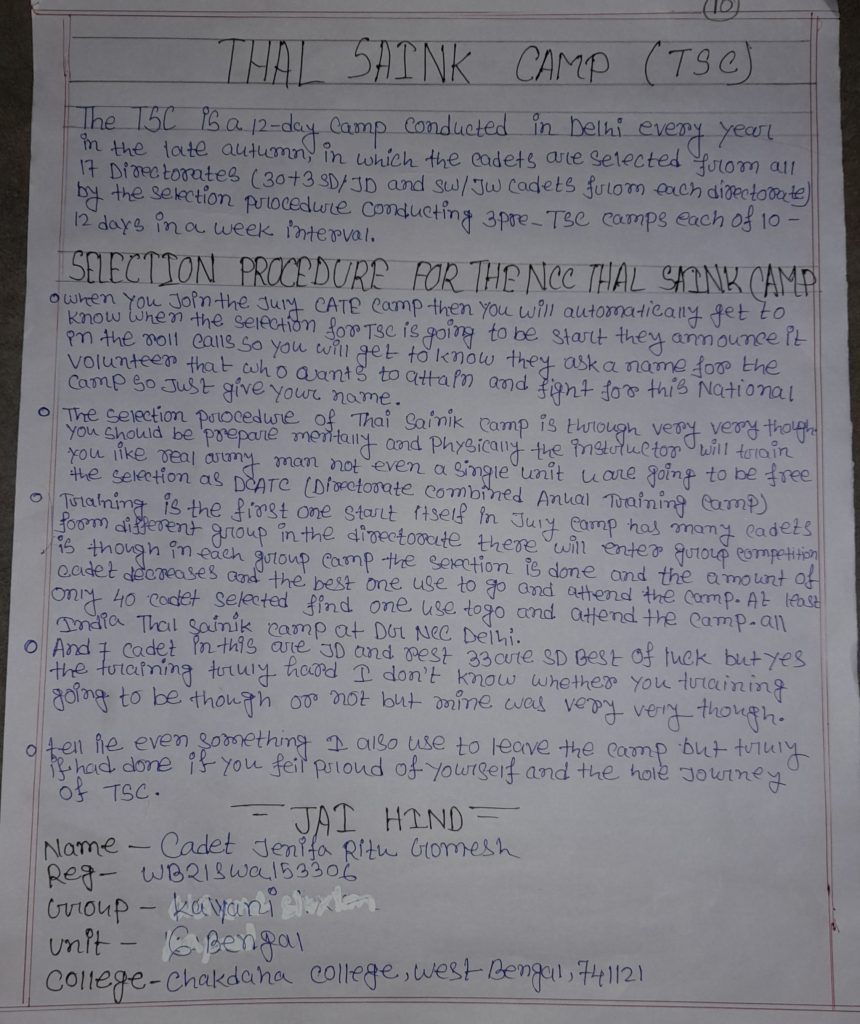 10
THAL SAINK CAMP (TSC)
The TSC is a 12-day Camp Conducted in Delhi every year
in the late autumn, in which the cadets are selected from all
17 Directorates (30+3 SD/JD and SW/JW Cadets from each directorate)
by the selection procedure conducting 3pre-TSC camps each of 10-
12 days in a week interval.
SELECTION PROCEDURE FOR THE NCC THAL SAINK CAMP
when you Join the July CATE camp then you will automatically get to
know when the selection for TSC is going to be start they announce it
in the roll calls so you will get to know they ask a name for the
volunteer that who wants to attain and fight for this National
Camp so Just give your name.
The selection procedure of Thal Sainik Camp is through very very though
you should be prepare mentally and Physically the instructor will train
you like real army man not even a single unit u are going to be free
the selection as DCATC (Directorate combined Anual Training Camp)
Training is the first one start itself in July camp has many cadets
form different group in the directorate there will enter group competition
is though in each group camp the selection is done and the amount of
cadet decreases and the best one use to go and attend the camp. At least
only 40 cadet selected find one use togo and attend the camp-all
India Thal sainik camp at DGI NCC Delhi.
And 7 cadet in this are JD and rest 33 are SD Best of luck but yes
the training truly hard I don't know whether you training
going to be though or not but mine was very very though.
tell lie even something I also use to leave the camp but truly
if had done if you feil proud of yourself and the hole Journey
of TSC.
= JAI HIND =
Name - Cadet Jenifa Ritu Gomesh
Reg- WB21SWA153306
Group - Kalyani
Unit - Bengal
College-Chakdaha College, West Bengal, 741121